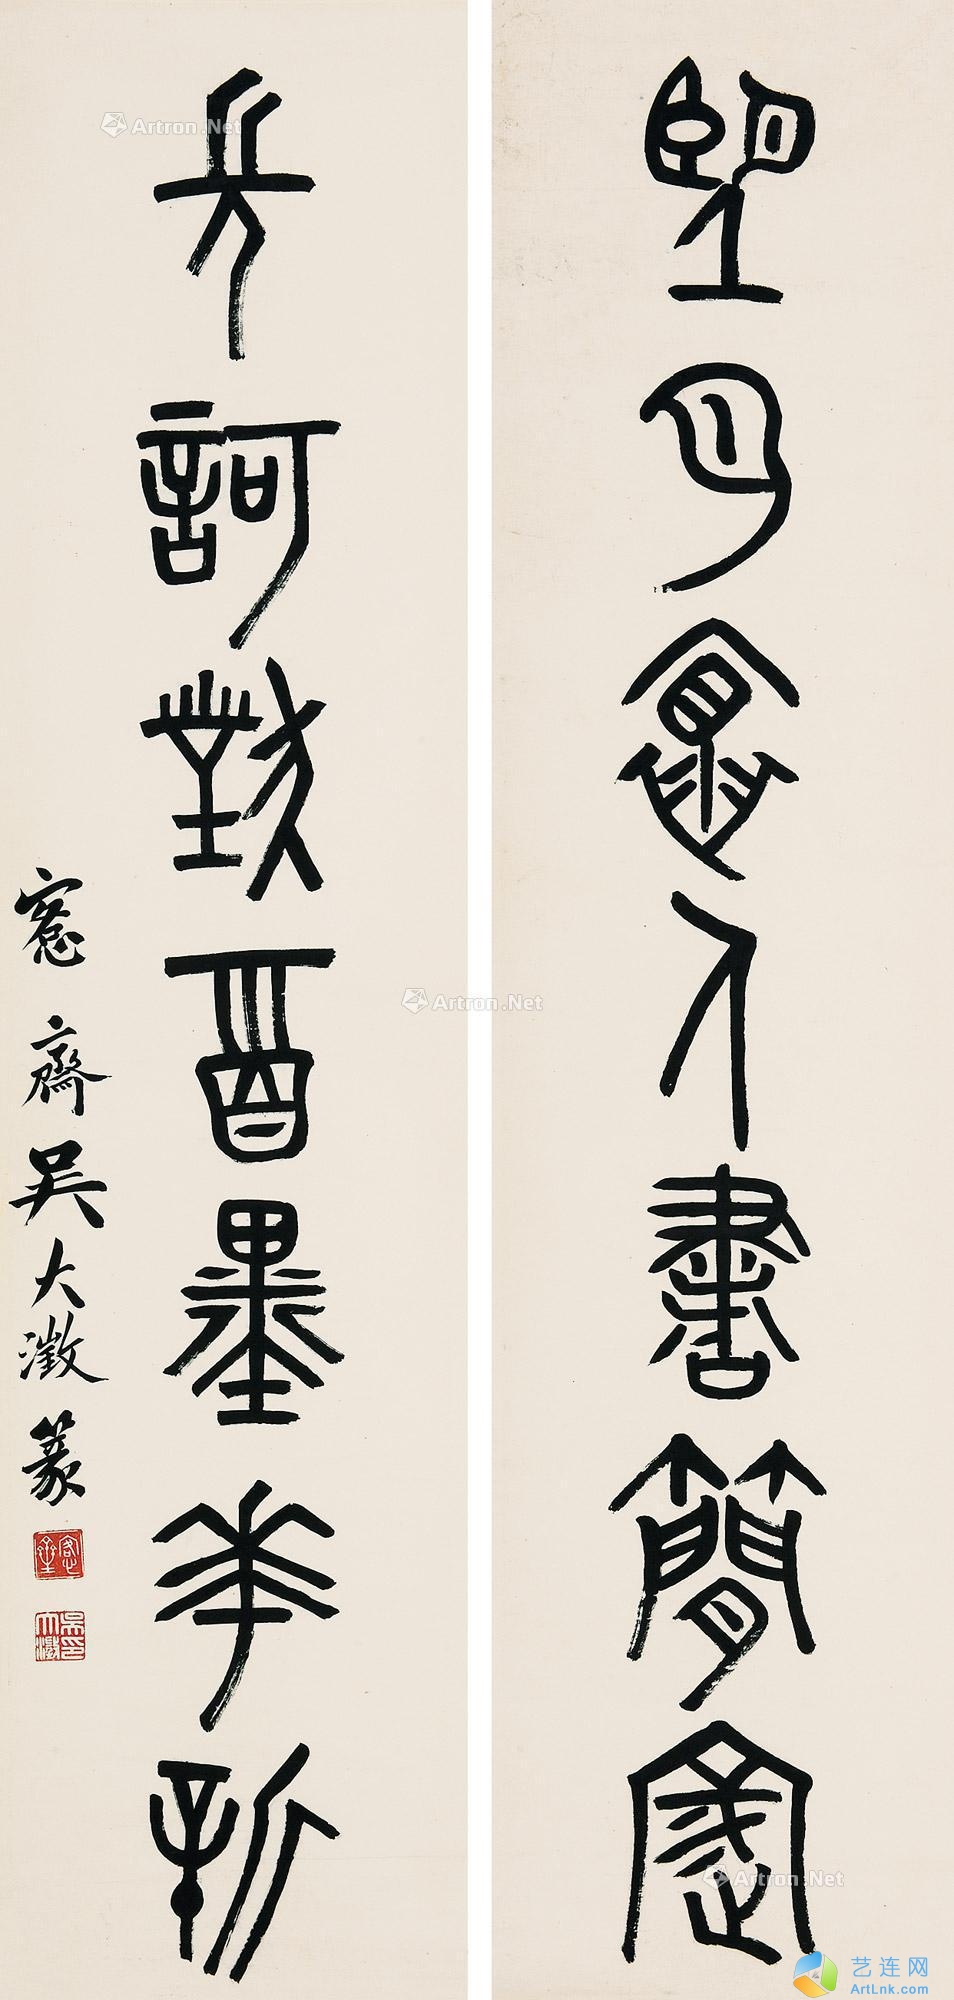 望月懷人書簡
長歌對酒墨華新
愙齋吳大澂篆
吳印大澂
Artron.Net
Artron.Net
Artron.Net
艺连网
ArtLnk.com